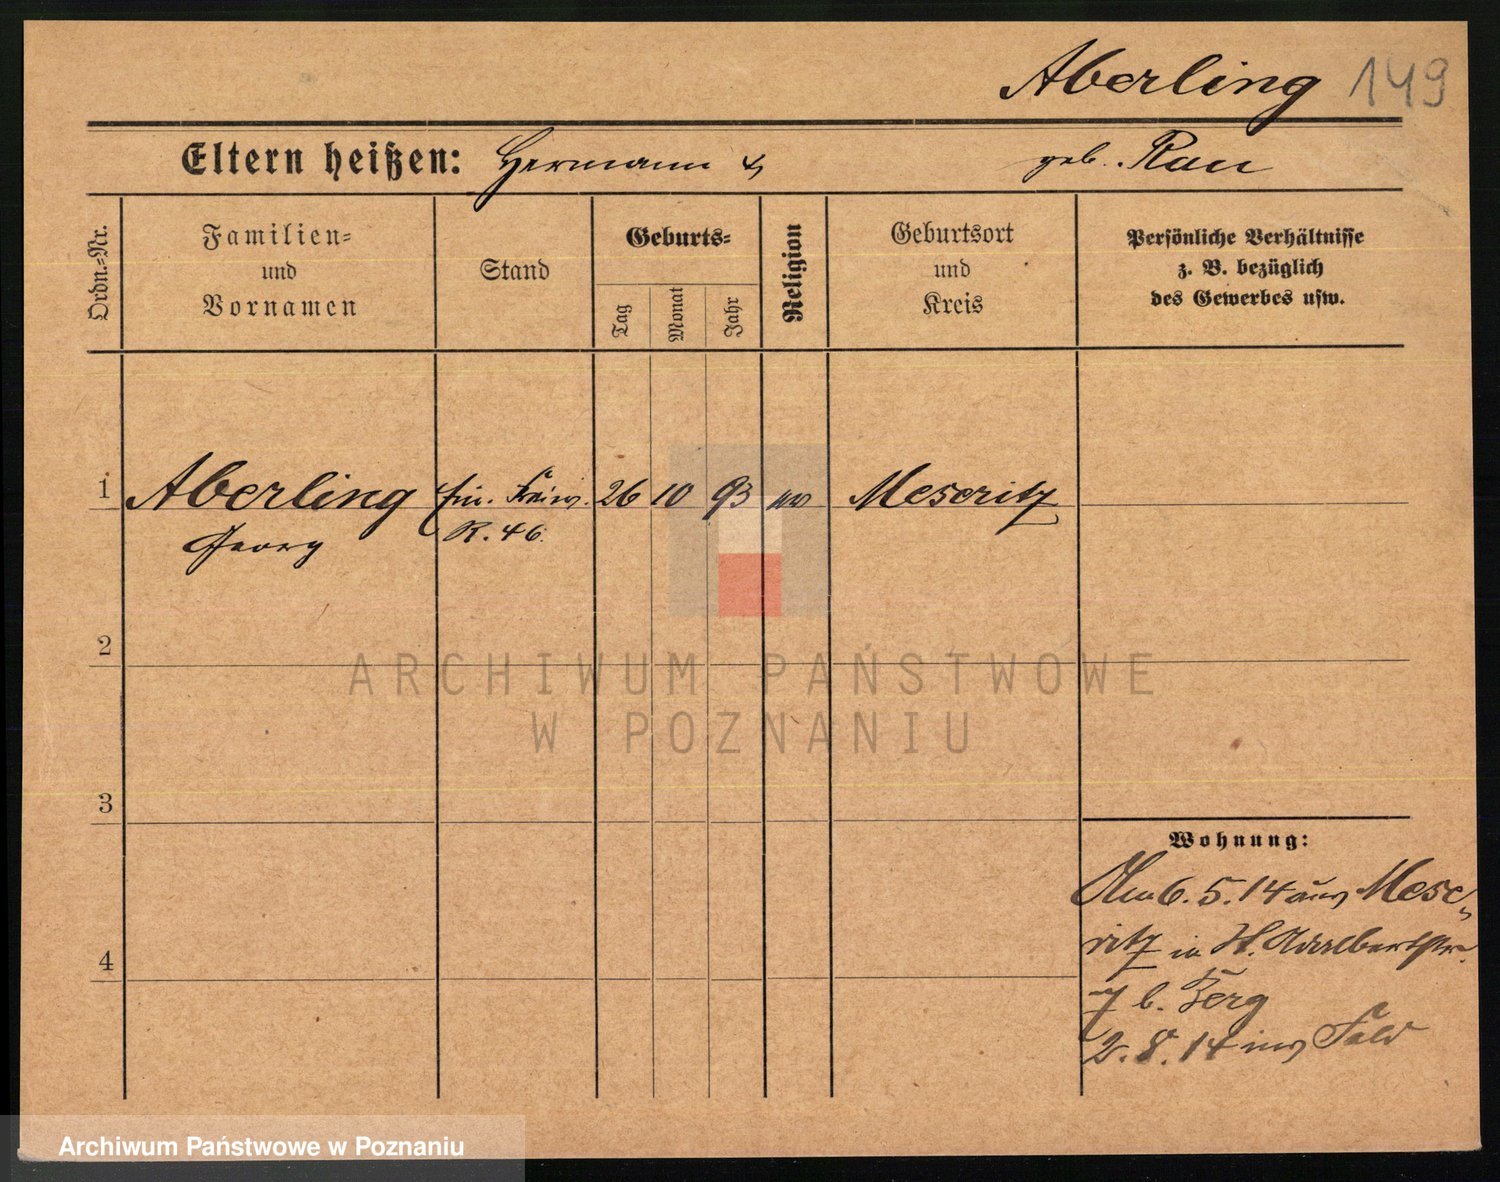 Aberling 149
Eltern heißen: Hermann & geb. Rau
Ordn.=Nr.
Familien=
und
Vornamen
Stand
Geburts=
Tag
Monat
Jahr
Religion
Geburtsort
und
Kreis
Persönliche Verhältnisse
z. B. bezüglich
des Gewerbes usw.
1 Aberling Ein. Freiw. 26 10 93 ev Meseritz
Georg R. 46.
2
3
4
Wohnung:
Am 6. 5. 14 aus Mese-
ritz in H. Adalbertstr.
7 b. Berg
2. 8. 14 ins Feld
ARCHIWUM PAŃSTWOWE
W POZNANIU
Archiwum Państwowe w Poznaniu